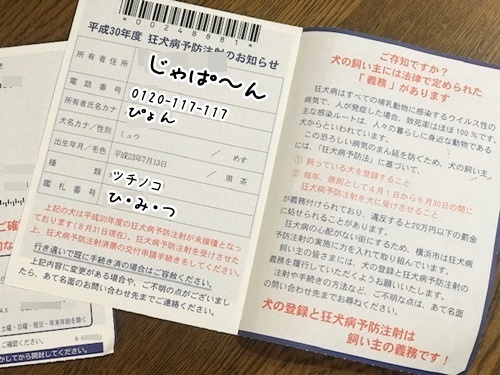 00248881
平成30年度 狂犬病予防注射のお知らせ
所有者住所
じゃぱ〜ん
電話番号
0120-117-117
所有者氏名カナ
ぴょん
犬名カナ/性別
ミュウ めす
出生年月/毛色
平成23年7月13日 / 黒 茶
種類
ツチノコ
鑑札番号
ひ・み・つ
上記の犬は平成30年度の狂犬病予防注射が未接種となっ
ております(8月31日現在)。狂犬病予防注射を受けさせた
上、狂犬病予防注射済票の交付申請手続きをしてください。
行き違いで既に手続き済の場合はご容赦ください。
上記内容に変更がある場合や、ご不明の点がございまし
たら、あて名面のお問い合わせ先までご連絡ください。
ご存知ですか?
犬の飼い主には法律で定められた
「義務」があります
狂犬病はすべての哺乳動物に感染するウイルス性の
病気で、人が発症した場合、致死率はほぼ100%です。
主な感染ルートは、人々の暮らしに身近な動物である
犬からといわれています。
この恐ろしい病気のまん延を防ぐため、犬の飼い主
には、「狂犬病予防法」に基づいて、
① 飼っている犬を登録すること
② 毎年、原則として4月1日から6月30日の間に
狂犬病予防注射を犬に受けさせること
が義務付けられており、違反すると20万円以下の罰金
に処せられることがあります。
狂犬病の心配がない街にするため、横浜市は狂犬病
予防注射の実施に力を入れて取り組んでいます。
飼い主の皆さまには、犬の登録と狂犬病予防注射の
義務を履行していただくようお願いいたします。
注射や手続きの方法など、ご不明な点は、あて名面
の問い合わせ先までお尋ねください。
犬の登録と狂犬病予防注射は
飼い主の義務です!
ご確
FAX
土曜・日曜・祝日・年末年始を除く
ご確認ください。
かしてから開封してください。